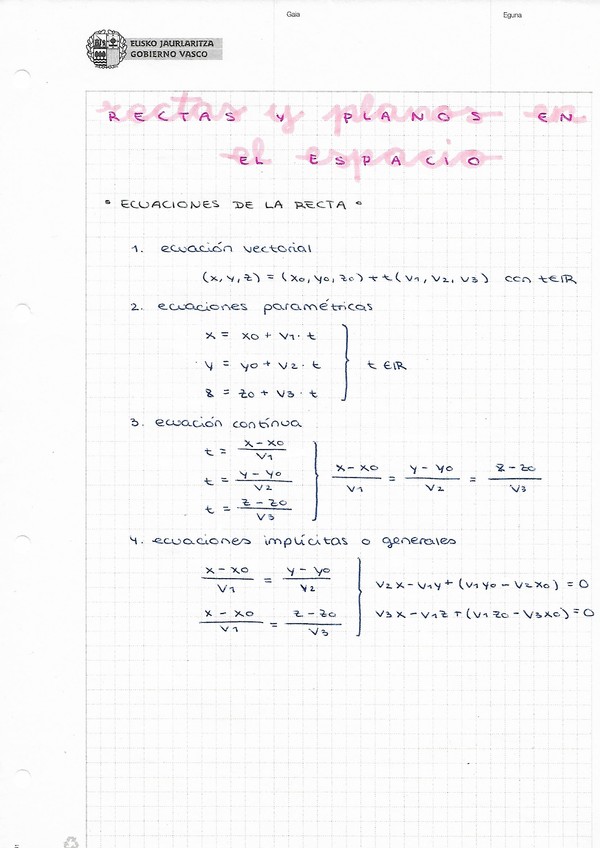 Gaia Eguna
EUSKO JAURLARITZA
GOBIERNO VASCO
rectas y planos en
RECTAS Y PLANOS EN
el espacio
EL ESPACIO
• ECUACIONES DE LA RECTA •
1. ecuación vectorial
(x, y, z) = (x0, y0, z0) + t(v1, v2, v3) con t∈IR
2. ecuaciones paramétricas
x = x0 + v1 · t
y = y0 + v2 · t } t ∈IR
z = z0 + v3 · t
3. ecuación contínua
t = (x - x0)/v1
t = (y - y0)/v2 } (x - x0)/v1 = (y - y0)/v2 = (z - z0)/v3
t = (z - z0)/v3
4. ecuaciones implícitas o generales
(x - x0)/v1 = (y - y0)/v2 } v2x - v1y + (v1y0 - v2x0) = 0
(x - x0)/v1 = (z - z0)/v3 } v3x - v1z + (v1z0 - v3x0) = 0